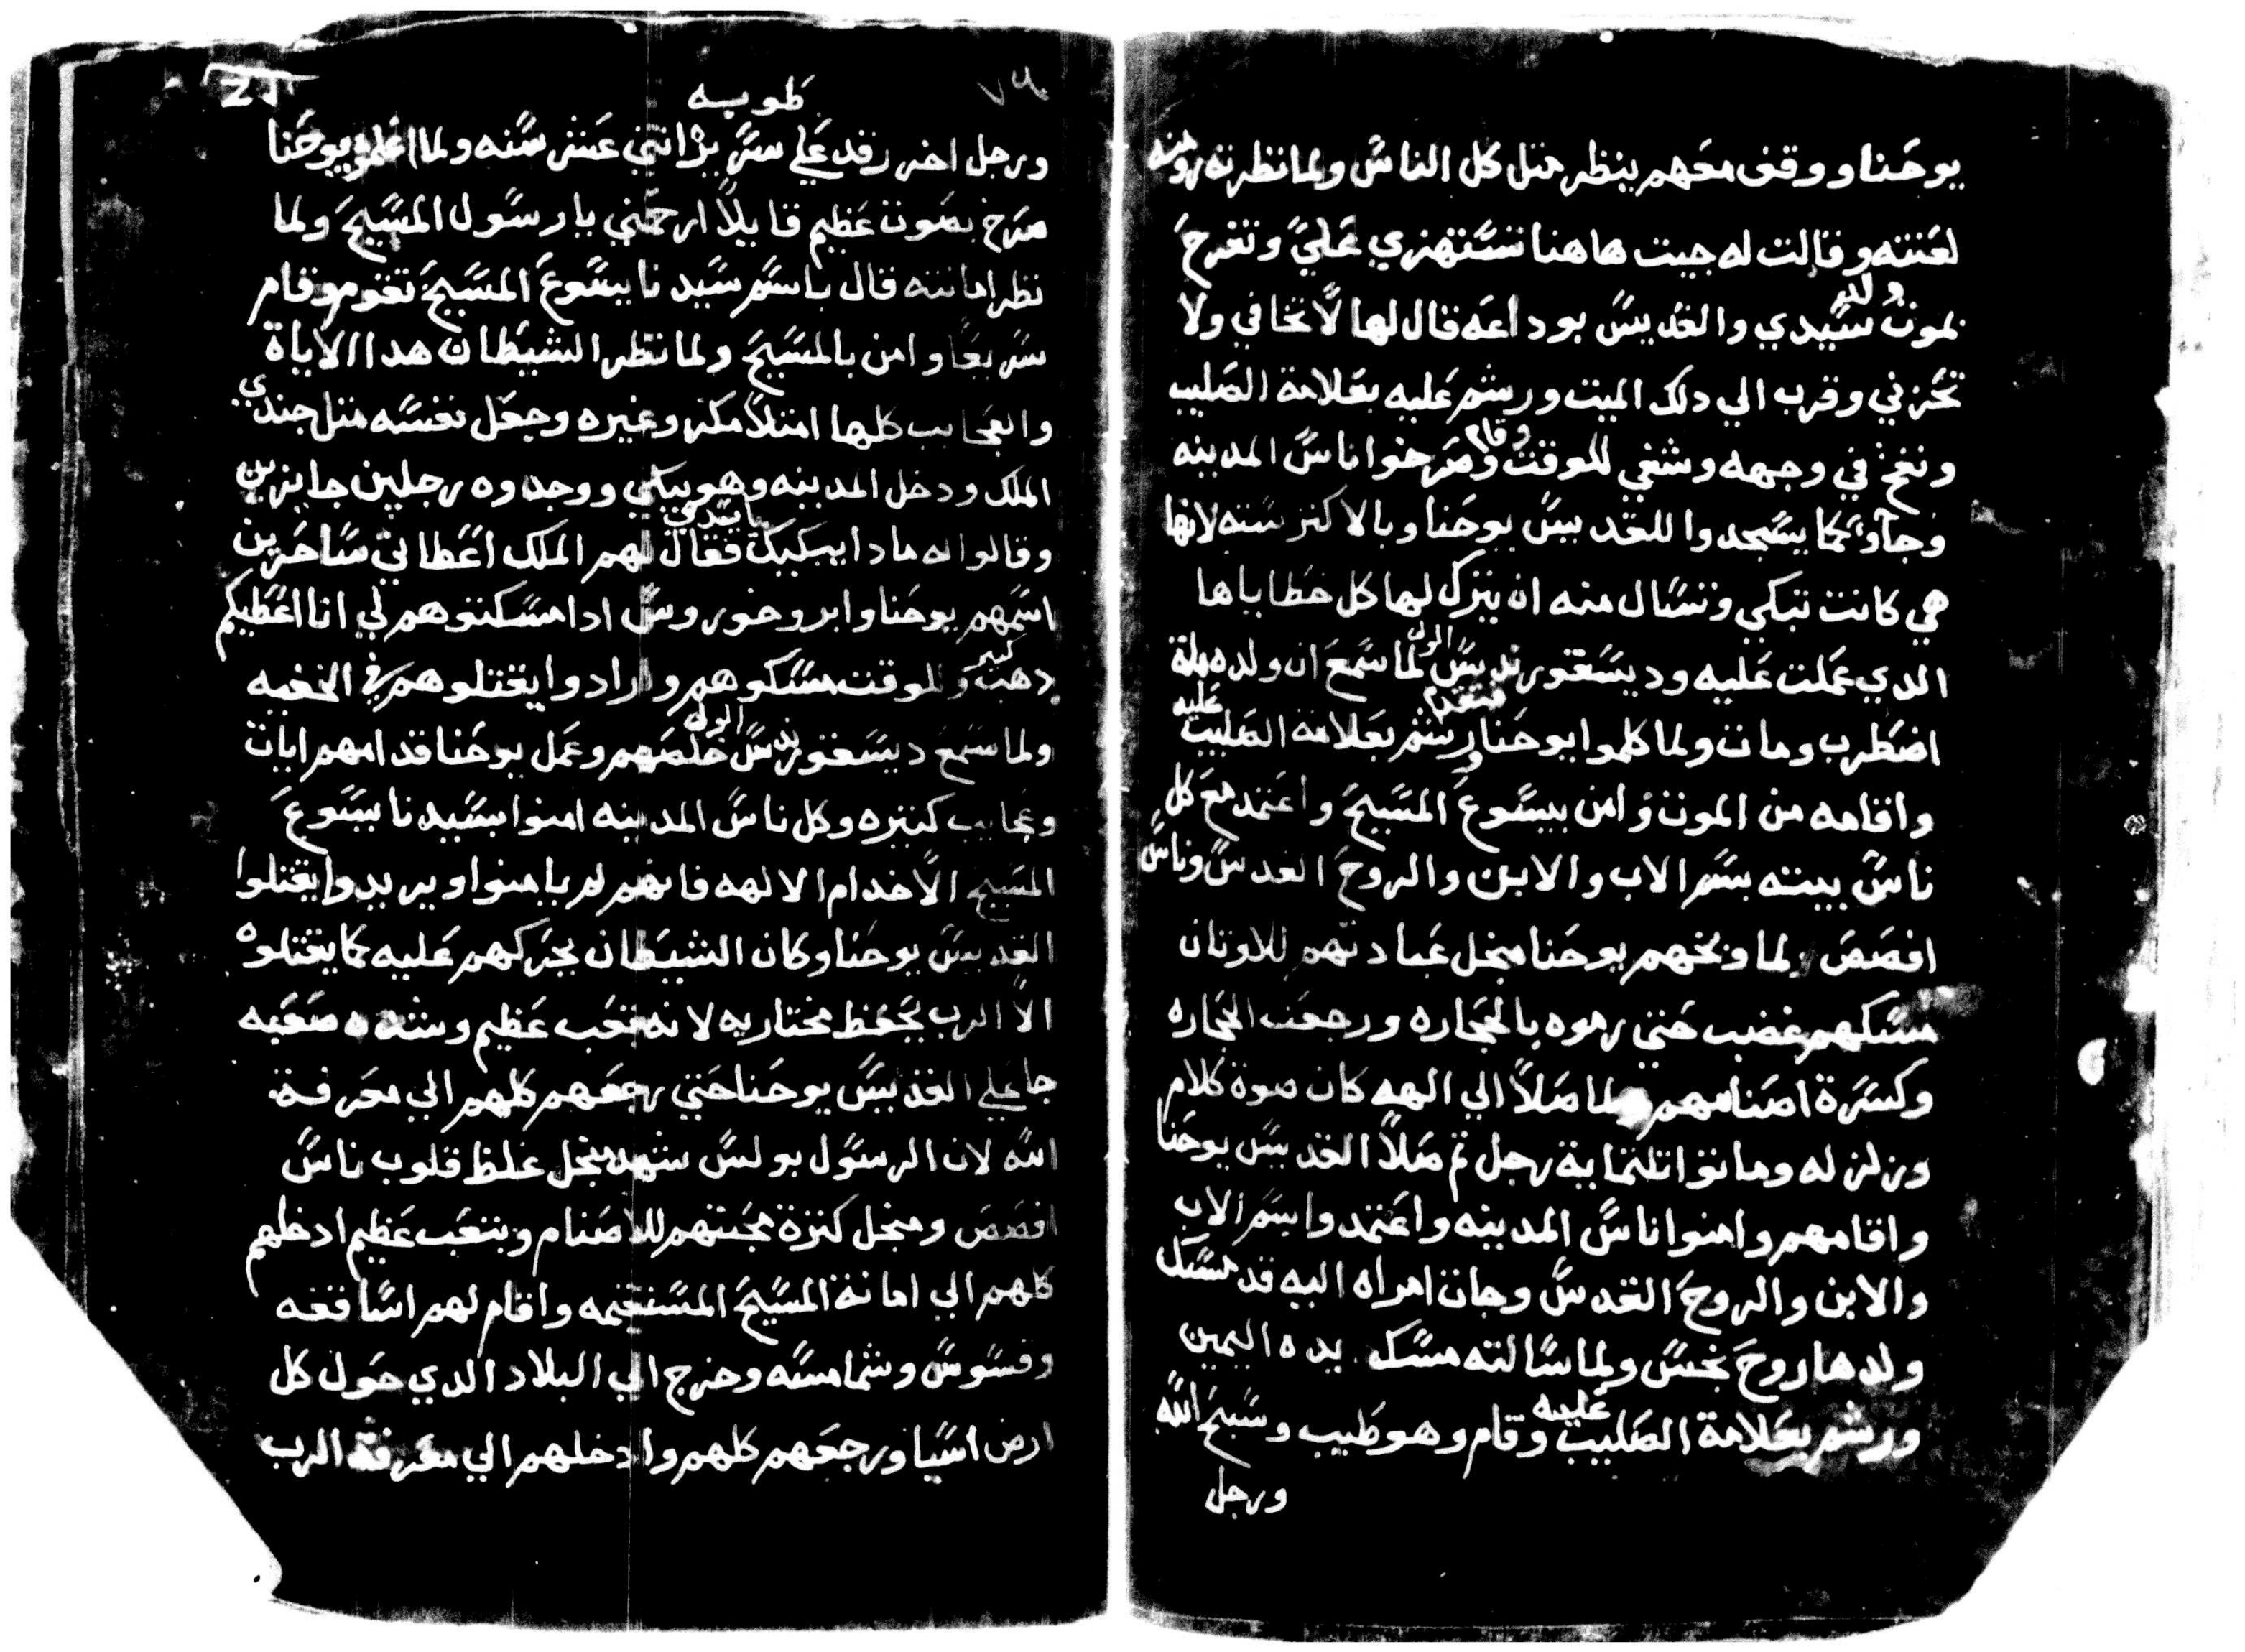 يوحنا ووقف معهم ينظر متل كل الناس ولما نظرته رومنه
لعنته وقالت له جيت هاهنا تستهزي علي وتفرح
بموت ولد سيدي والقديس بوداعه قال لها لا تخافي ولا
تحزني وقرب الي دلك الميت ورشم عليه بعلامة الصليب
ونفخ في وجهه وشفي للوقت وقام وصرخوا ناس المدينه
وجآوا كما يسجدوا للقديس يوحنا وبالاكتر سته لانها
هي كانت تبكي وتسال منه ان يترك لها كل خطاياها
الدي عملت عليه وديسقوريديس الوالي لما سمع ان ولده مات
اضطرب ومات ولما كلموا يوحنا فتقدم ورشم عليه بعلامة الصليب
واقامه من الموت وامن بيسوع المسيح واعتمد مع كل
ناس بيته بسم الاب والابن والروح القدس وناس
افصص لما وبخهم يوحنا منجل عبادتهم للاوتان
مسكهم غضب حتي رموه بالحجاره ورجعت الحجاره
وكسرة اصنامهم ولما صلا الي الهه كان صوة كلام
وزلزله وماتوا تلتماية رجل تم صلا القديس يوحنا
واقامهم وامنوا ناس المدينه واعتمدوا بسم الاب
والابن والروح القدس وجات امراه اليه قد مسك
ولدها روح نجس ولما سالته مسك يده اليمين
ورشم عليه بعلامة الصليب وقام وهو طيب وسبح الله
ورجل
طوبيه
ورجل اخر رقد علي سرير اتني عشر سنه ولما اعلموا يوحنا
صرخ بصوت عظيم قايلا ارحمني يا رسول المسيح ولما
نظر امانته قال باسم سيدنا يسوع المسيح تقوم وقام
سريعا وامن بالمسيح ولما نظر الشيطان هدا الاياة
والعجايب كلها امتلا مكر وغيره وجعل نفسه متل جندي
الملك ودخل المدينه وهو يبكي ووجدوه رجلين جايزين
وقالوا له مادا يبكيك يا سيدي فقال لهم الملك اعطاني ساحرين
اسمهم يوحنا وابروخوروس ادا مسكتوهم لي انا اعطيكم
دهب كتير وللوقت مسكوهم وارادوا يقتلوهم في الخفيه
ولما سمع ديسقوريديس الوالي خلصهم وعمل يوحنا قدامهم ايات
وعجايب كتيره وكل ناس المدينه امنوا بسيدنا يسوع
المسيح الا خدام الالهه فانهم لم يامنوا ويريدوا يقتلوا
القديس يوحنا وكان الشيطان يحركهم عليه كما يقتلوه
الا الرب يحفظ مختاريه لانه تعب عظيم وشده صعبه
جا علي القديس يوحنا حتي رجعهم كلهم الي معرفة
الله لان الرسول بولس شهد منجل غلظ قلوب ناس
افصص ومنجل كترة محبتهم للاصنام وبتعب عظيم ادخلهم
كلهم الي امانة المسيح المستقيمه واقام لهم اساقفه
وقسوس وشمامسه وخرج الي البلاد الدي حول كل
ارض اسيا ورجعهم كلهم وادخلهم الي معرفة الرب